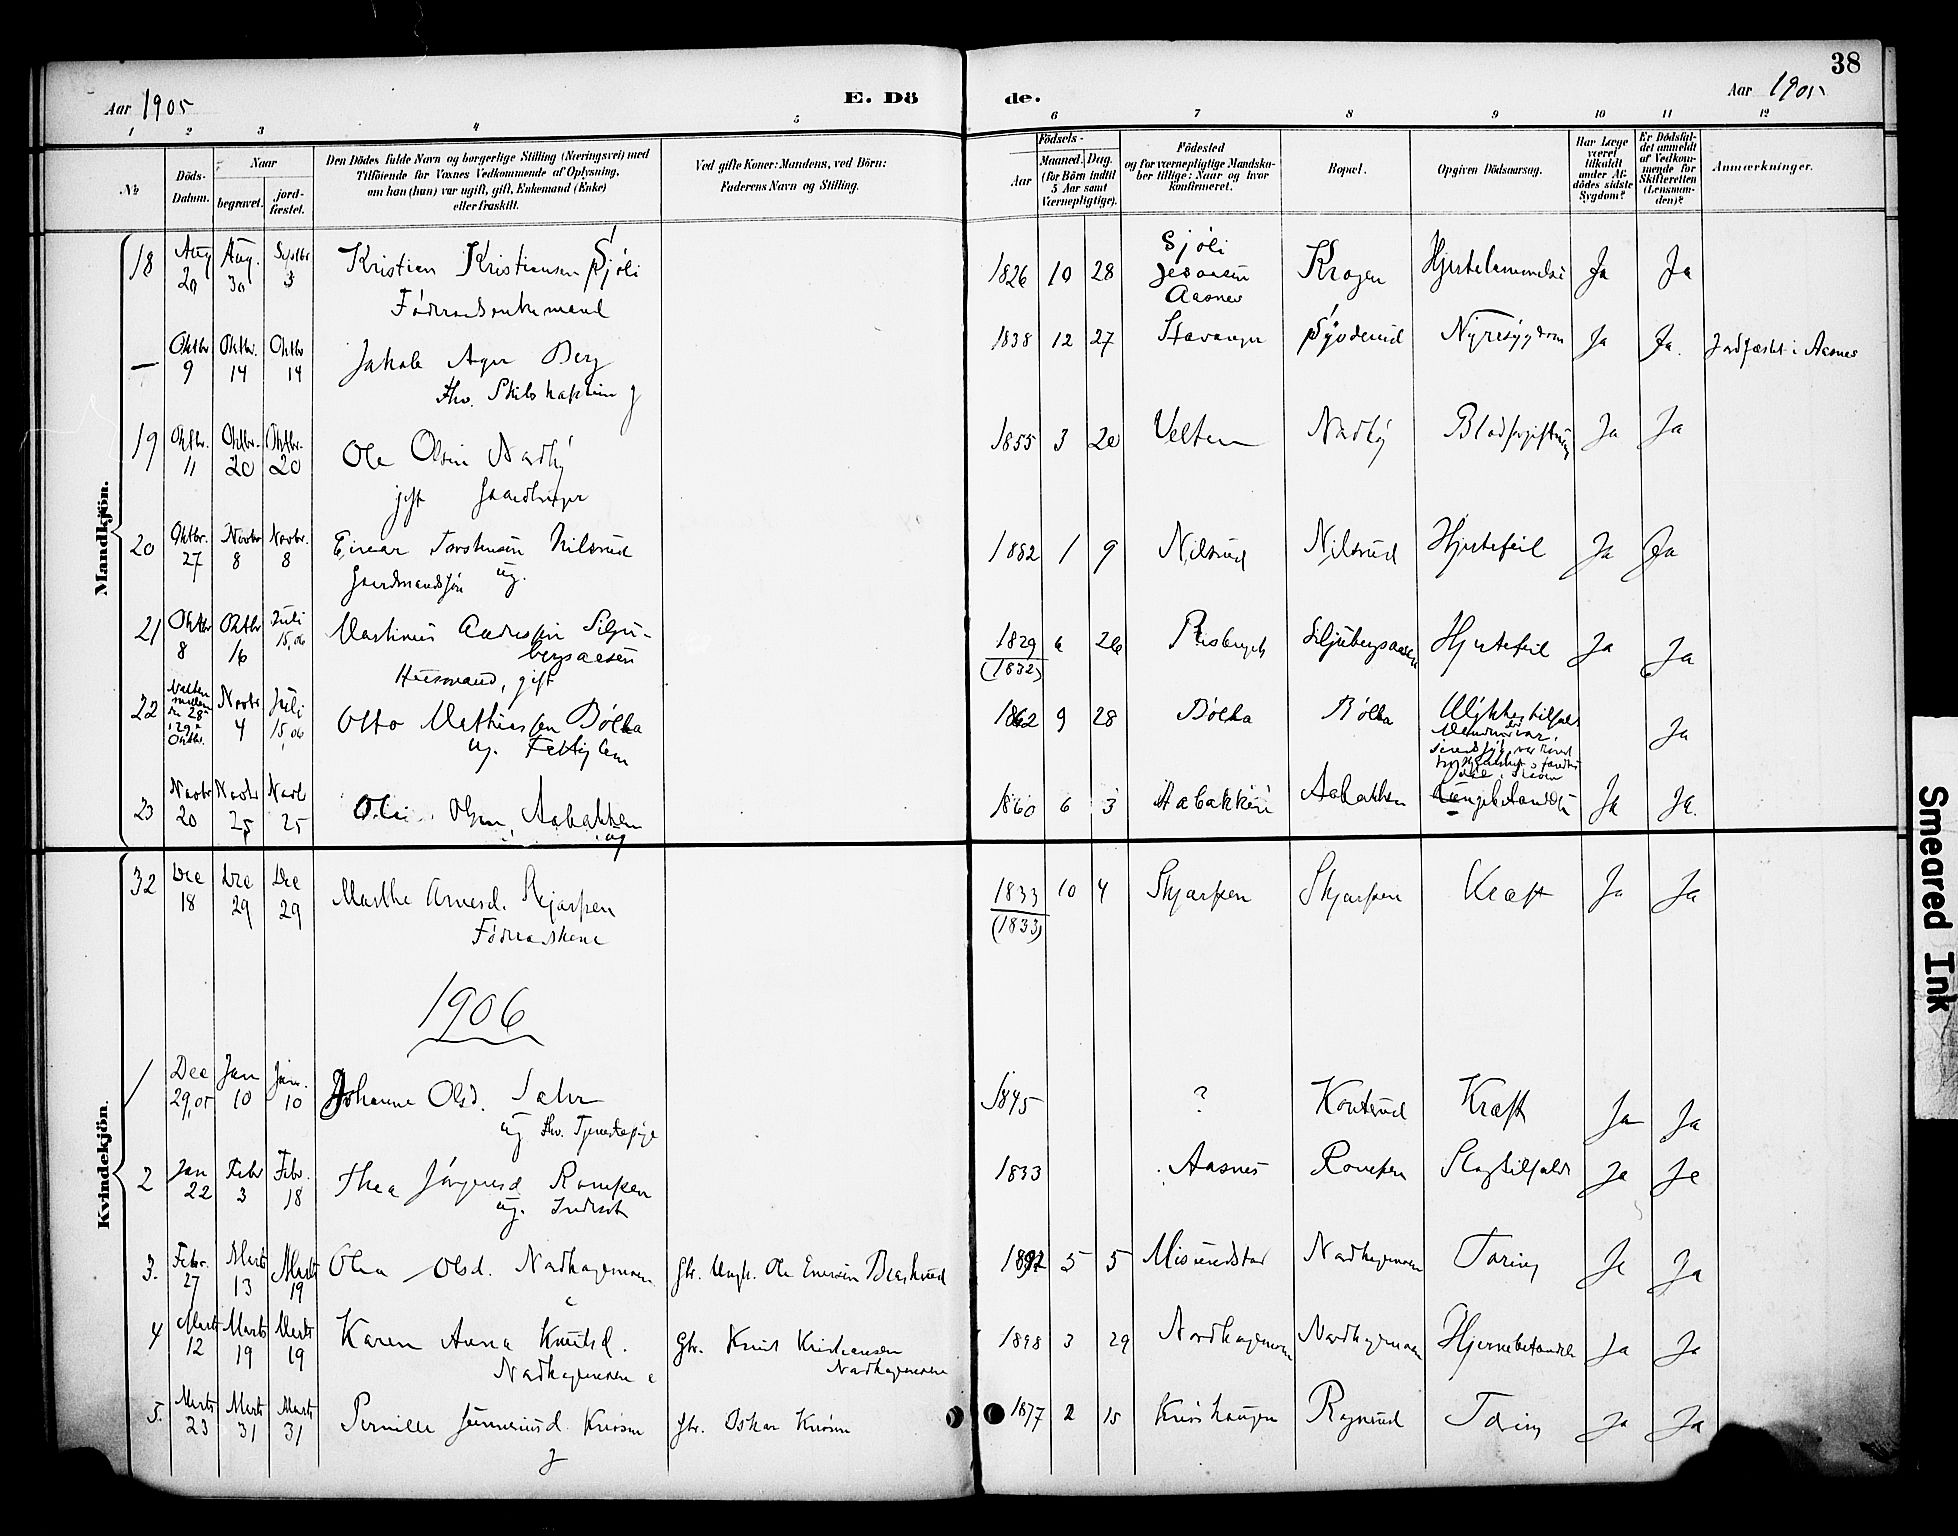 38
Aar 1905
E. Dö
de.
Aar 1905
1 2 3 4 5 6 7 8 9 10 11 12
№
Döds-
Datum.
Naar
begravet.
jord-
fæstet.
Den Dödes fulde Navn og borgerlige Stilling (Næringsvei) med
Tilföiende for Voxnes Vedkommende af Oplysning,
om han (hun) var ugift, gift, Enkemand (Enke)
eller fraskilt.
Ved gifte Koner: Mandens, ved Börn:
Faderens Navn og Stilling.
Födsels-
Aar
Maaned. Dag.
(for Börn indtil
5 Aar samt
Værnepligtige).
Födested
og for værnepligtige Mandska-
ber tillige: Naar og hvor
konfirmeret.
Bopæl.
Opgiven Dödsaarsag.
Har Læge
været
tilkaldt
under Af-
dödes sidste
Sygdom?
Er Dödsfal-
det anmeldt
af Vedkom-
mende for
Skifteretten
(Lensman-
den)?
Anmærkninger.
Mandkjön.
18 Aug 20 Aug. 30 Septbr 3 Kristian Kristiansen Sjöli 1826 10 28 Sjöli Aasnes Krogen Hjertelammelse Ja Ja
Föderaadsenkemand
— Oktbr 9 Oktbr. 14 Oktbr 14 Jakob Ager Berg 1838 12 27 Stavanger Nyresygdom Ja Ja. Jordfæstet i Aasnes
fhv. Skibskaptein g
19 Oktbr. 11 Oktbr. 20 Oktbr. 20 Ole Olsen Nordby 1855 3 20 Velten Nordby Blodforgiftning Ja Ja
gift Gaardbruger
20 Oktbr. 27 Novbr 8 Novbr. 8 Einar Torstensen Nilsrud 1882 1 9 Nilsrud Nilsrud Hjertefeil Ja Ja
Gaardmandssön ug.
21 Oktbr 8 Oktbr 16 Juli 15, 06 Martinus Andersen Silju-
bergsaasen 1829 (1832) 6 26 Risberget Siljubergsaasen Hjertefeil Ja Ja
Husmand, gift
22 Natten mellem den 28 i 29 Oktbr. Novbr 4 Juli 15, 06 Otto Mathiassen Bölka 1862 9 28 Bölka Bölka Ulykkestilfælde Ja
ug. Fattiglem
23 Novbr 20 Novbr 25 Novbr 25 Ole Olsen Aabakken 1860 6 3 Aabakken Aabakken Lungebetændelse Ja Ja.
ug
Kvindekjön.
32 Dec 18 Dec 29 Dec 29 Marthe Arnesd. Skjærpen 1833 (1833) 10 4 Skjærpen Skjærpen Kræft Ja Ja
Föderaadskone
1906
1 Dec 29,05 Jan 10 Jan. 10 Johanne Olsd. 1845 ? Konterud Kræft Ja Ja
ug fhv. Tjenestepige
2 Jan 22 Febr 3 Febr. 18 Thea Jörgensd Rompen 1833 Aasnes Rompen Slagtilfælde Ja Ja
ug. Inderst
3. Febr. 27 Marts 13 Marts 19 Olea Olsd. Nordhagemoen Gbr. Ungk. Ole Evensen Braskerud 1892 5 5 Misundstad Nordhagemoen Tæring Ja Ja
4 Marts 12 Marts 19 Marts 19 Karen Anna Knutsd. Gbr. Knut Kristiansen 1898 3 29 Nordhagemoen Nordhagemoen Hjernebetændelse Ja Ja
Nordhagemoen Nordhagemoen
5. Marts 23 Marts 31 Marts 31 Pernille Gunneriusd. Knrösen gbr. Oskar Knrösen 1877 2 15 Ragnrud Tæring Ja Ja
g
Smeared Ink